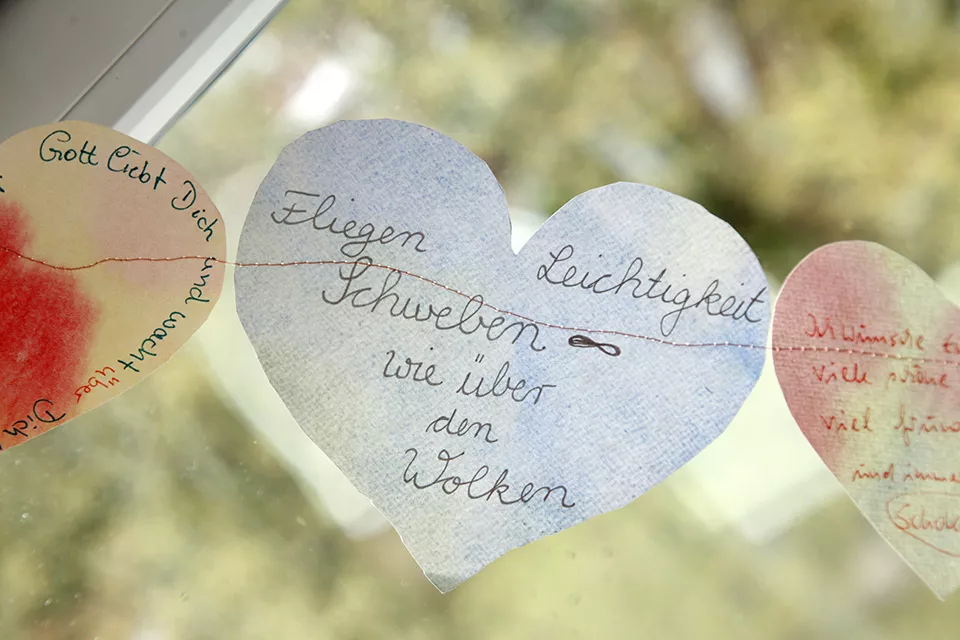 Gott liebt Dich und wacht über Dich
Fliegen
Leichtigkeit
Schweben
wie über
den
Wolken
viele schöne
viel